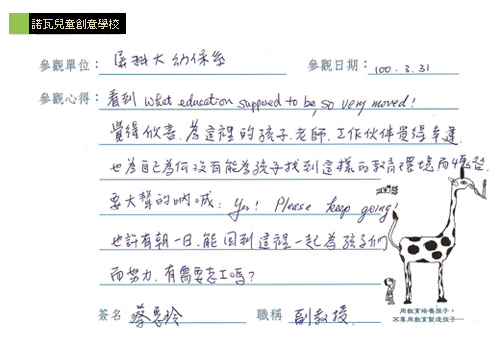 諾瓦兒童創意學校
參觀單位： 屏科大幼保系 參觀日期： 100.3.31
參觀心得： 看到 what education supposed to be, so very moved!
覺得欣喜，為這裡的孩子、老師、工作伙伴覺得幸運
也為自己為何沒有能為孩子找到這樣的教育環境而
要大聲的吶喊：Yes! Please keep going!
也許有朝一日，能回到這裡一起為孩子們
而努力，有需要志工嗎？
簽名 蔡 玲 職稱 副教授
用教育培養孩子，
不要用教育製造孩子